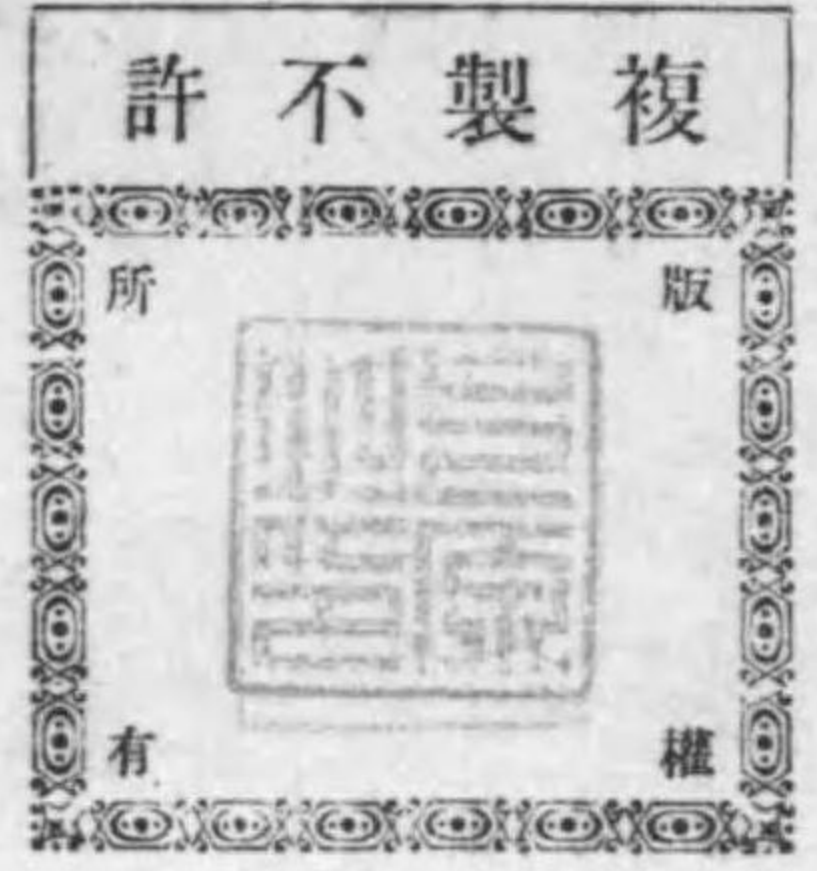 複製不許
版權
所有